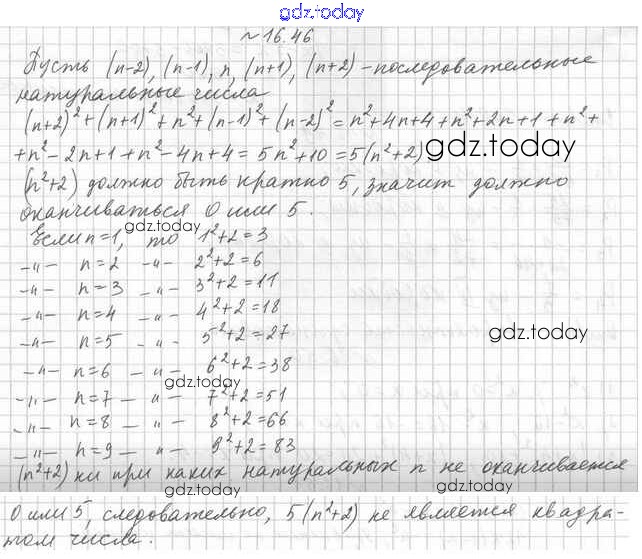 gdz.today
№ 16.46
Пусть (n-2), (n-1), n, (n+1), (n+2) - последовательные
натуральные числа
(n+2)² + (n+1)² + n² + (n-1)² + (n-2)² = n² + 4n + 4 + n² + 2n + 1 + n² +
+ n² - 2n + 1 + n² - 4n + 4 = 5n² + 10 = 5(n² + 2)
gdz.today
(n² + 2) должно быть кратно 5, значит должно
оканчиваться 0 или 5.
gdz.today
Если n = 1, то 1² + 2 = 3
-"- n = 2 -"- 2² + 2 = 6
-"- n = 3 -"- 3² + 2 = 11
gdz.today
-"- n = 4 -"- 4² + 2 = 18
-"- n = 5 -"- 5² + 2 = 27
gdz.today
-"- n = 6 -"- 6² + 2 = 38
gdz.today
-"- n = 7 -"- 7² + 2 = 51
-"- n = 8 -"- 8² + 2 = 66
-"- n = 9 -"- 9² + 2 = 83
gdz.today
(n² + 2) ни при каких натуральных n не оканчивается
gdz.today
0 или 5, следовательно, 5(n² + 2) не является квадра-
том числа.